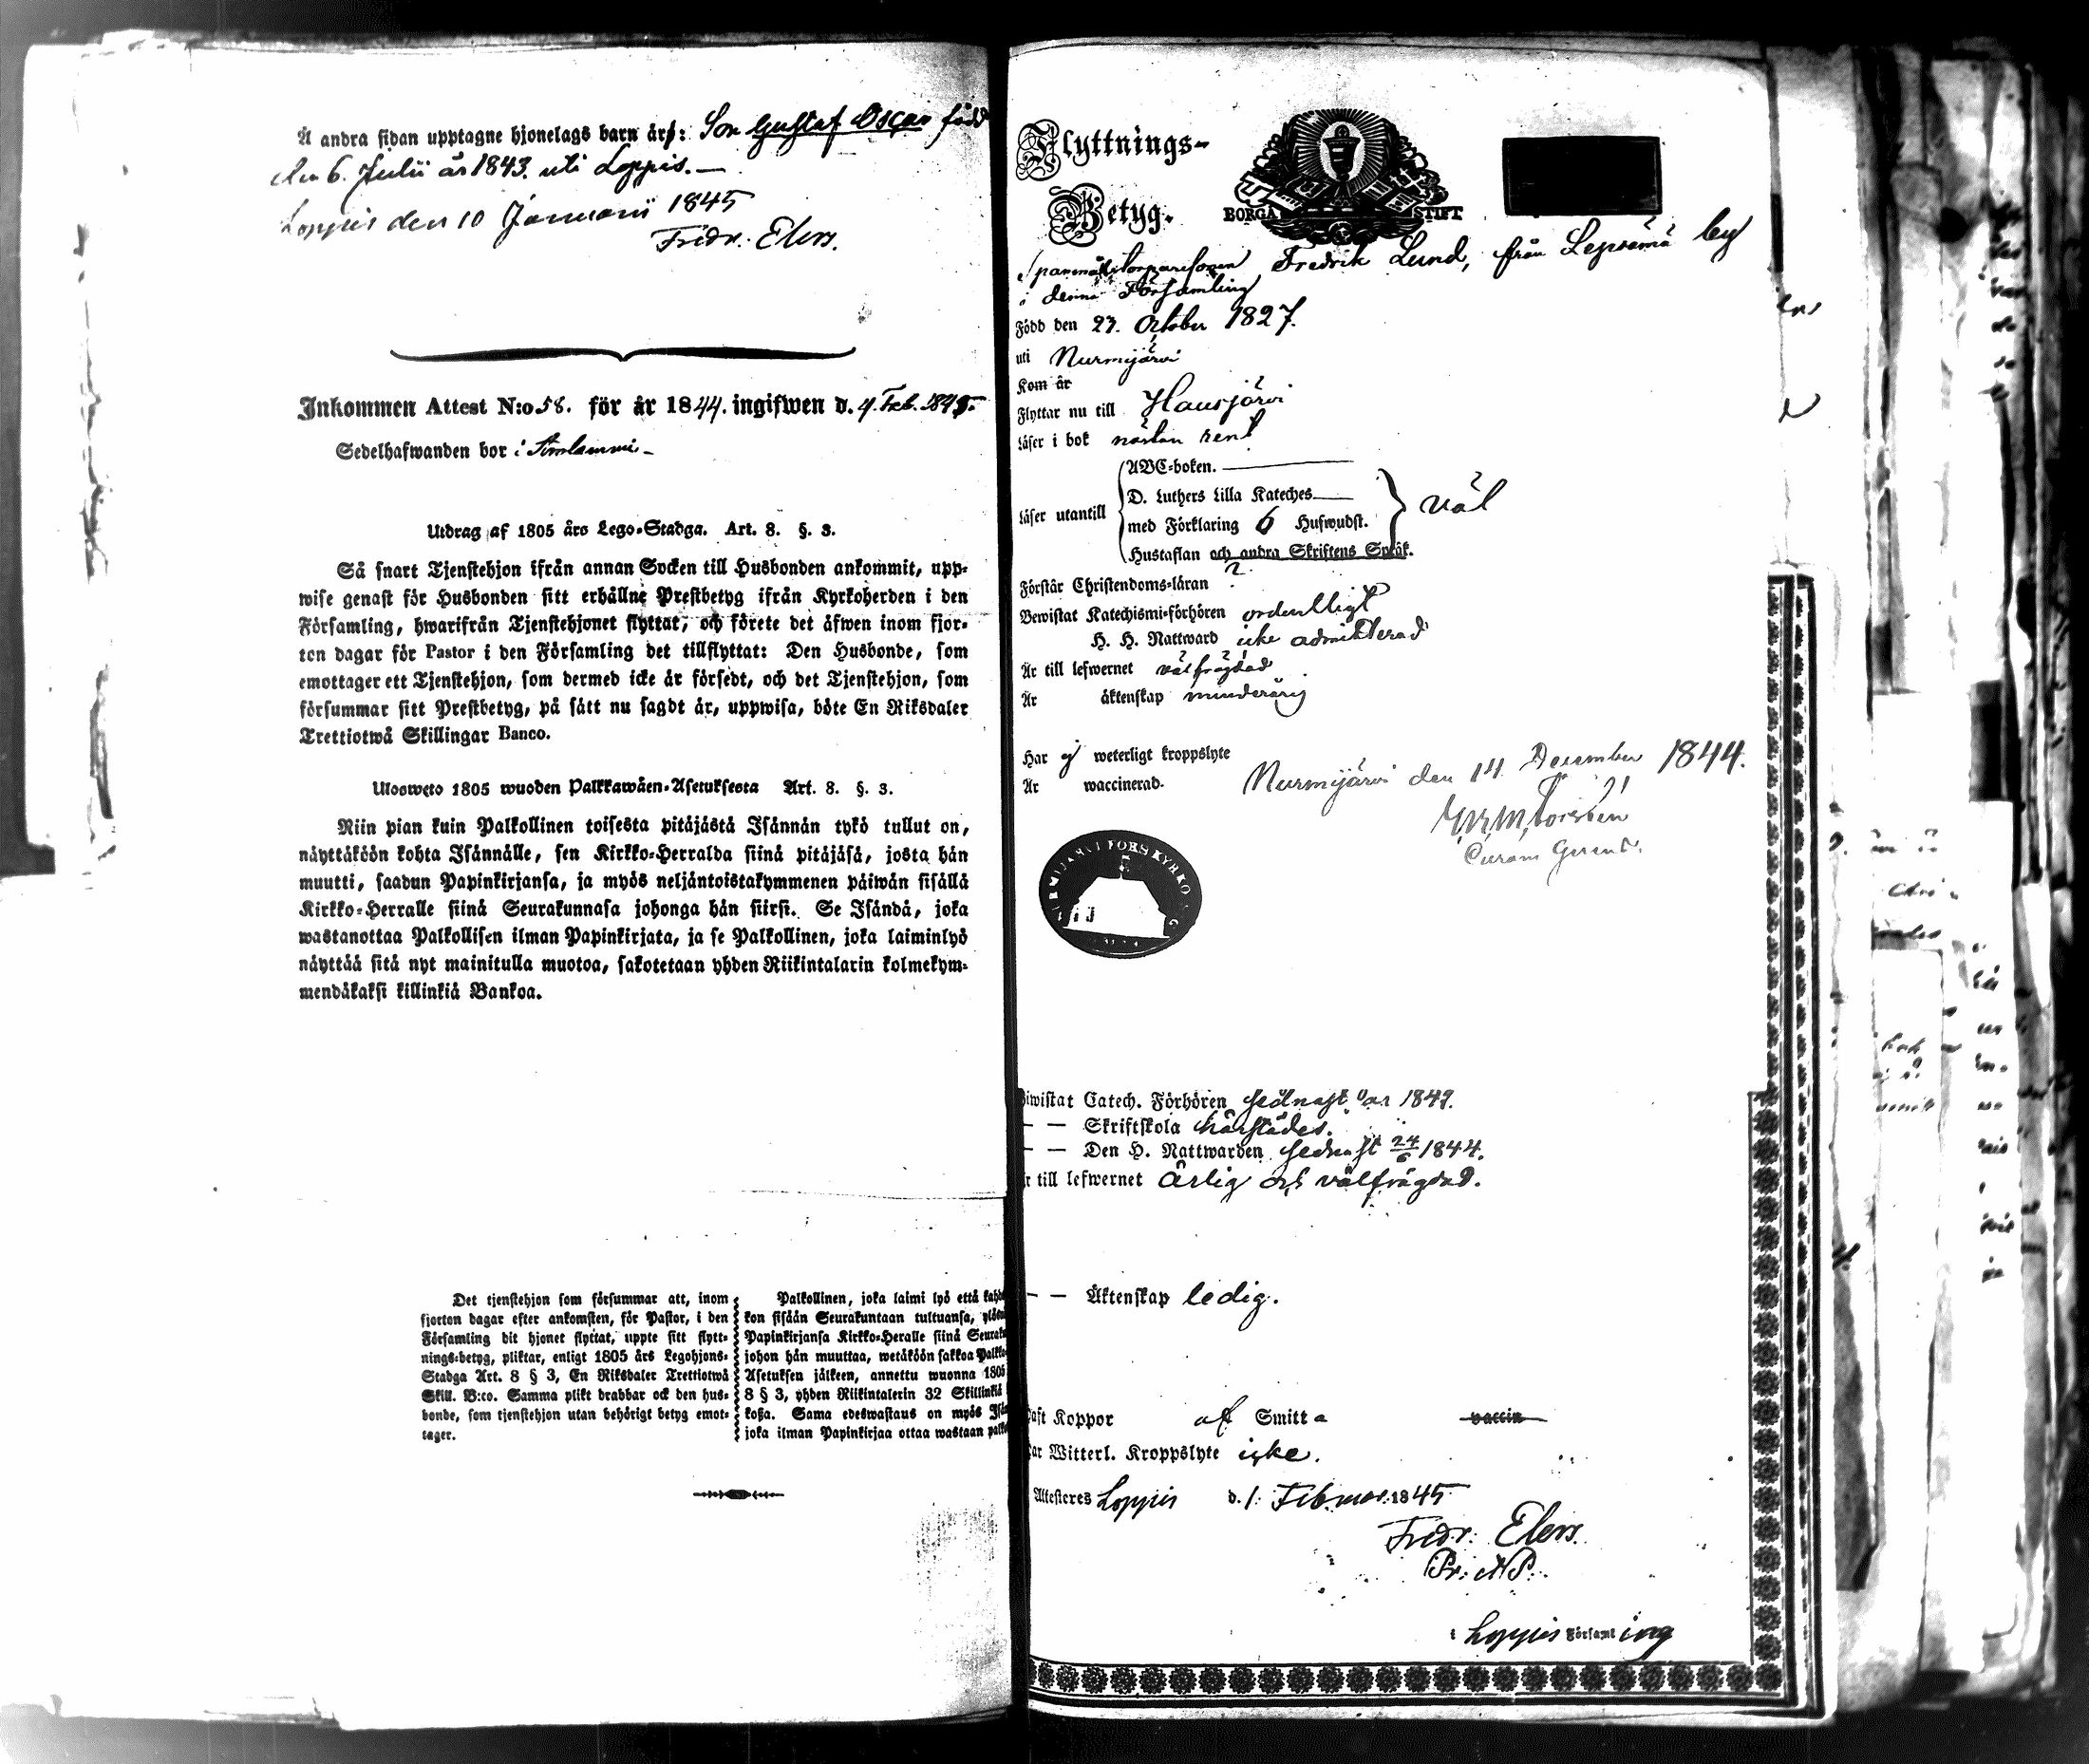 Å andra sidan upptagne hjonelags barn är: Son Gustaf Oscar född
den 6. Julii år 1843. uti Loppis. —
Loppis den 10 Januarii 1845
Fridr. Elers.
Inkommen Attest N:o 58. för år 1844. ingifwen d. 4. Feb. 1845.
Sedelhafwanden bor i
Utdrag af 1805 års Lego-Stadga. Art. 8. §. 3.
Så snart Tjenstehjon ifrån annan Socken till Husbonden ankommit, upp-
wise genast för Husbonden sitt erhållne Prestbetyg ifrån Kyrkoherden i den
Församling, hwarifrån Tjenstehjonet flyttat, och förete det äfwen inom fjor-
ton dagar för Pastor i den Församling det tillflyttat: Den Husbonde, som
emottager ett Tjenstehjon, som dermed icke är försedt, och det Tjenstehjon, som
försummar sitt Prestbetyg, på sätt nu sagdt är, uppwisa, böte En Riksdaler
Trettiotwå Skillingar Banco.
Ulosweto 1805 wuoden Palkkawäen-Asetuksesta Art. 8. §. 3.
Niin pian kuin Palkollinen toisesta pitäjästä Isännän tykö tullut on,
näyttäköön kohta Isännälle, sen Kirkko-Herralda siinä pitäjäsä, josta hän
muutti, saadun Papinkirjansa, ja myös neljäntoistakymmenen päiwän sisällä
Kirkko-Herralle siinä Seurakunnasa johonga hän siirsi. Se Isändä, joka
wastanottaa Palkollisen ilman Papinkirjata, ja se Palkollinen, joka laiminlyö
näyttää sitä nyt mainitulla muotoa, sakotetaan yhden Riikintalarin kolmekym-
mendäkaksi killinkiä Bankoa.
Det tjenstehjon som försummar att, inom
fjorton dagar efter ankomsten, för Pastor, i den
Församling dit hjonet flyttat, uppte sitt flytt-
nings-betyg, pliktar, enligt 1805 års Legohjons-
Stadga Art. 8 § 3, En Riksdaler Trettiotwå
Skill. B:co. Samma plikt drabbar ock den hus-
bonde, som tjenstehjon utan behörigt betyg emot-
tager.
Palkollinen, joka laimi lyö että
kon sisään Seurakuntaan tultuansa,
Papinkirjansa Kirkko-Heralle siinä
johon hän muuttaa, wetäköön sakkoa
Asetuksen jälkeen, annettu wuonna 1805
8 § 3, yhden Riikintalerin 32 Skillinkiä
koßa. Sama edeswastaus on myös
joka ilman Papinkirjaa ottaa wastaan
Flyttnings-
Betyg.
BORGÅ STIFT
Fredrik Lund, från Lepsämä by
i denna Församling
Född den 23. October 1827.
uti Nurmijärvi
Kom år
Flyttar nu till Hausjärvi
Läser i bok nästan rent
Läser utantill
ABC-boken.
D. Luthers Lilla Kateches
med Förklaring 6 Hufwudst.
Hustaflan och andra Skriftens Språk.
väl
Förstår Christendoms-läran ?
Bewistat Katechismi-förhören ordentligt
H. H. Nattward icke admitterad
Är till lefwernet välfrägdad
Är äktenskap minderårig
Har ej weterligt kroppslyte
Är waccinerad.
Nurmijärvi den 14 December 1844.
NURMIJÄRVI
Bewistat Catech. Förhören sednast
— — Skriftskola härstädes.
— — Den H. Nattwarden sednast 24/6 1844.
till lefwernet Ärlig och välfrägdad.
— — Äktenskap ledig.
Haft Koppor af Smitta vaccin
Har Witterl. Kroppslyte icke.
Attesteres Loppis d. 1. Februar. 1845
Fridr. Elers.
i Loppis Församling